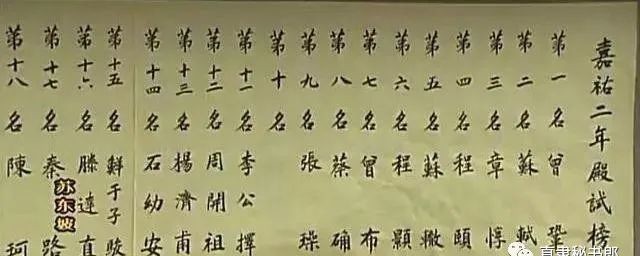 嘉祐二年殿試榜
第一名曾鞏
第二名蘇軾
第三名章惇
第四名程頤
第五名蘇轍
第六名程顥
第七名曾布
第八名蔡確
第九名張璪
第十名
第十一名李公擇
第十二名周開祖
第十三名楊濟甫
第十四名石幼安
第十五名鮮于子駿
第十六名滕達直
第十七名秦路
第十八名陳珂
苏东坡
直隶秘书郎